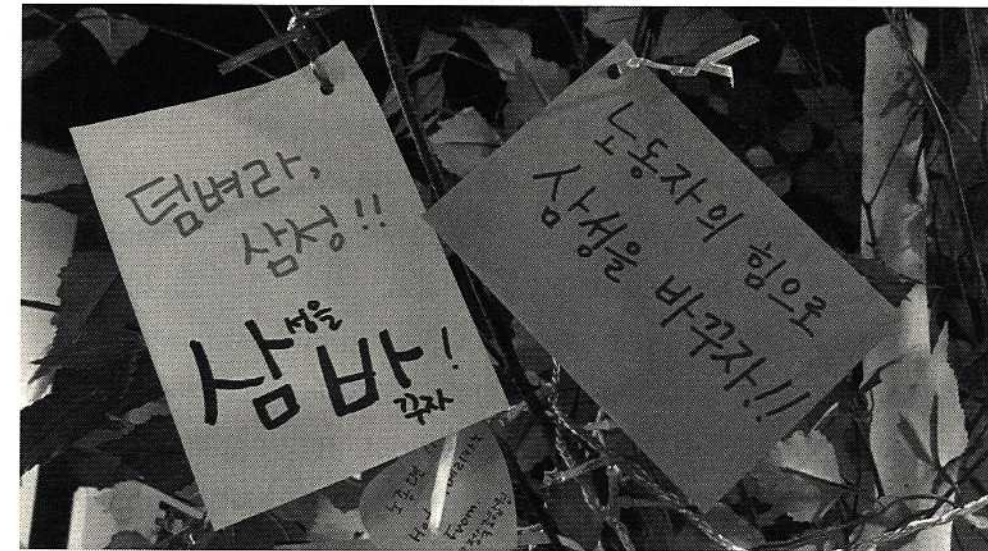 덤벼라,
삼성!!
삼성을
바꾸자!
노동자의 힘으로
삼성을 바꾸자!!
From